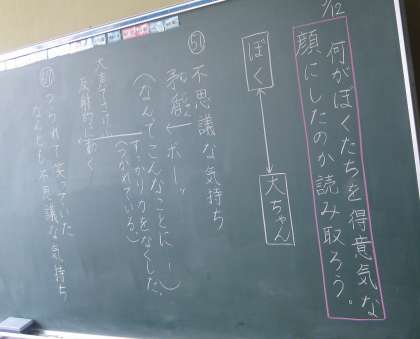 1/12
何がぼくたちを得意気な
顔にしたのか読み取ろう。
ぼく
大ちゃん
不思議な気持ち
ボーッ
(なんてこんなことに…!)
すっかり力をなくした、
(つかれている。)
反射的に動く
つられて笑っていた
なんとも不思議な気持ち